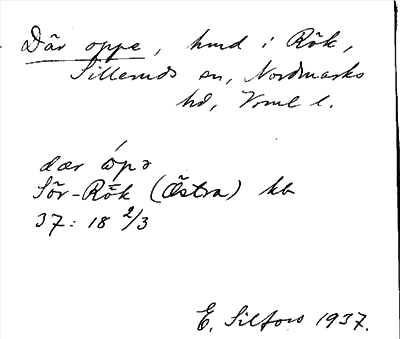 Där oppe, hmd i Rök,
Silleruds sn, Nordmarks
hd, Vrml l.
dær ópə
Sör-Rök (Östra) kb
37: 18 2/3
E. Silfors 1937.